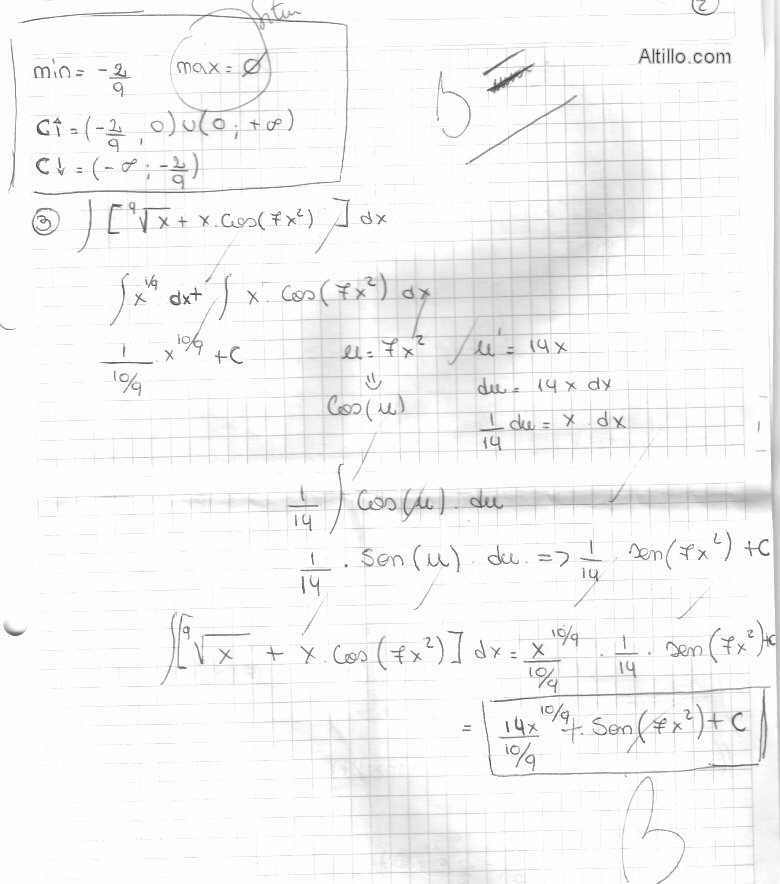 2
Altillo.com
min = -2/9 max = ∅
C↑ = (-2/9, 0) ∪ (0; +∞)
C↓ = (-∞; -2/9)
B
③ ∫ [ ⁹√x + x.Cos(7x²) ] dx
∫ x^(1/9) dx + ∫ x. Cos(7x²) dx
1/(10/9) . x^(10/9) + C u = 7x² u' = 14x
⇓ du = 14x dx
Cos(u) 1/14 du = x. dx
1/14 ∫ Cos(u). du
1/14 . Sen(u). du. => 1/14 . sen(7x²) + C
∫[⁹√x + x.Cos(7x²)] dx = x^(10/9)/(10/9) . 1/14 . sen(7x²) + C
= 14x^(10/9)/(10/9) + Sen(7x²) + C
B